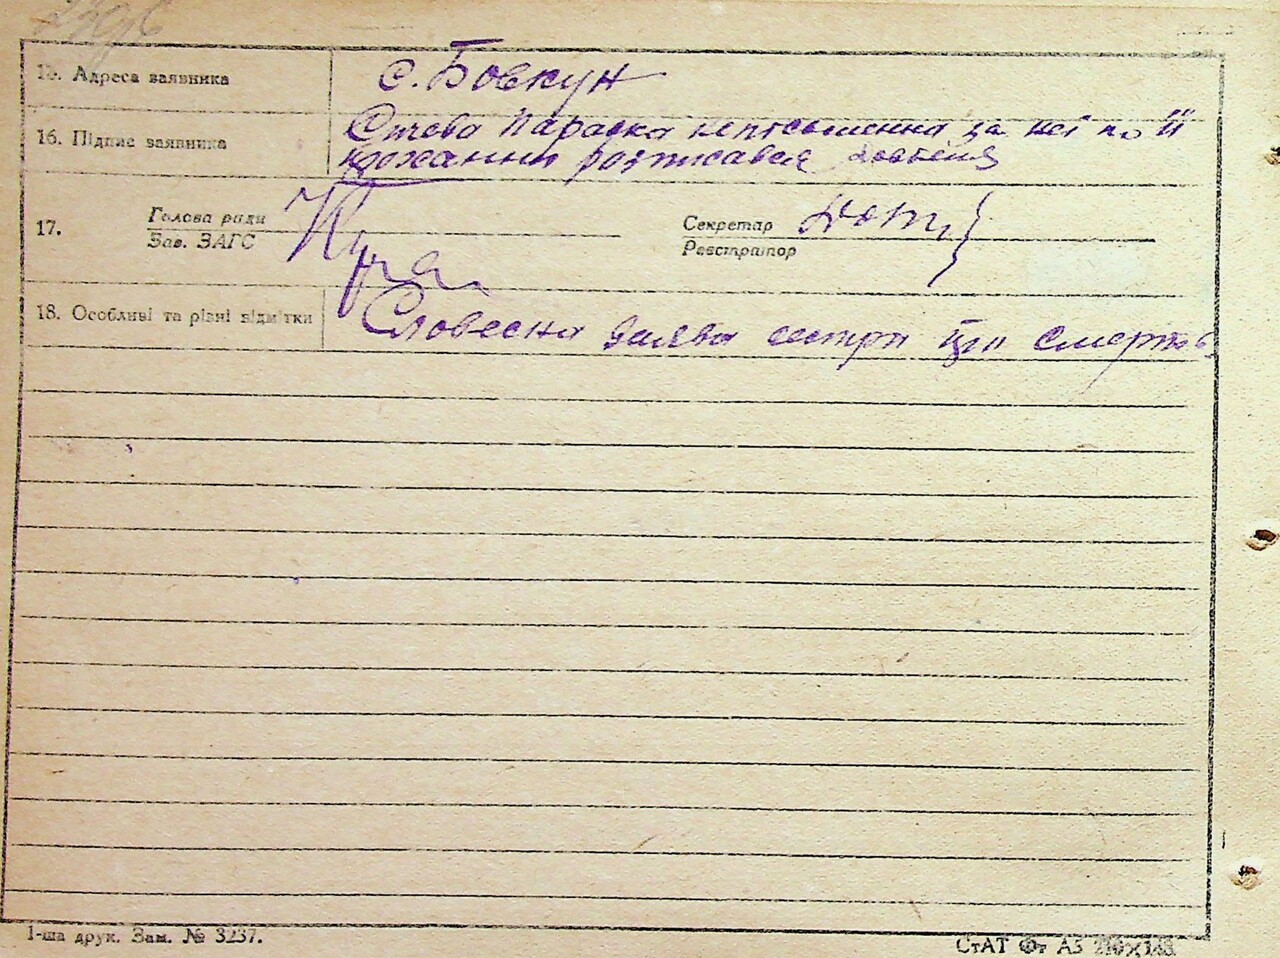 15. Адреса заявника с. Бовкун
16. Підпис заявника Сичова Параска неписьменна за неї по її
проханню розписався Довбеня
17. Голова ради
Зав. ЗАГС
Секретар
Реєстратор
18. Особливі та різні відмітки Словесна заява сестри про смерть
1-ша друк. Зам. № 3237.
СтАТ Фт А3 210×148